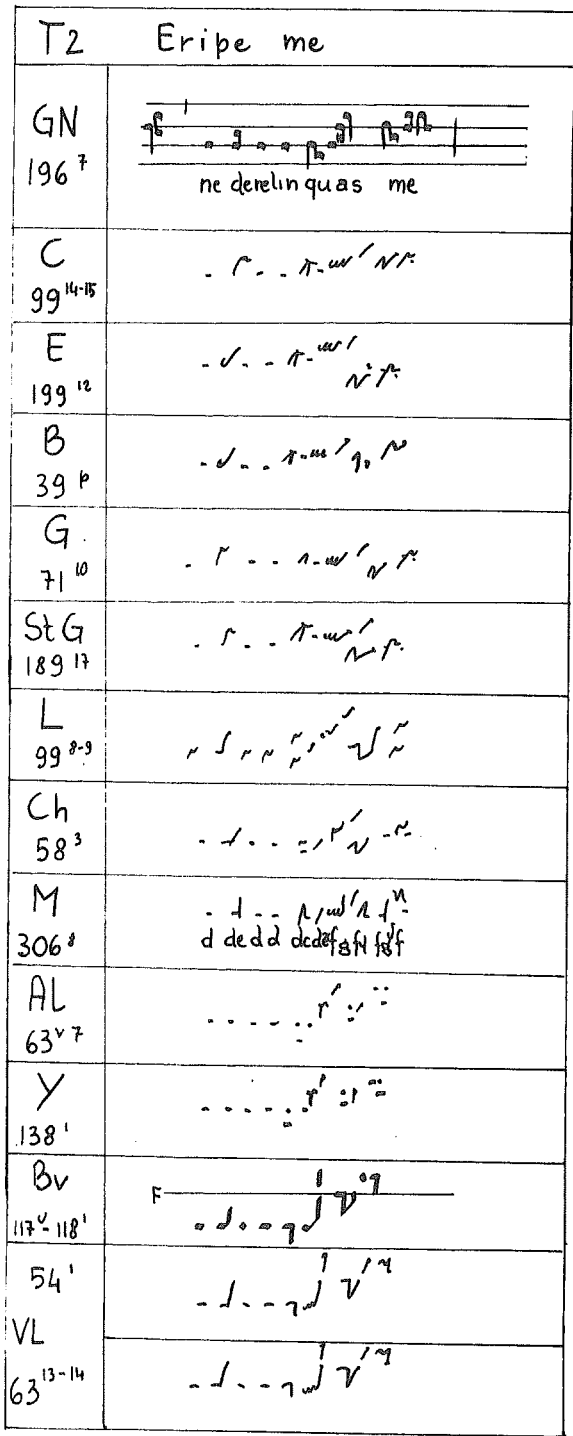 T2 Eripe me
GN
196 7
ne derelinquas me
C
99 14-15
E
199 12
B
39 p
G
71 10
St G
189 17
L
99 8-9
Ch
58 3
M
306 8
d de d d
AL
63 v 7
Y
138 1
Bv
117 v - 118 1
F
54 1
VL
63 13-14